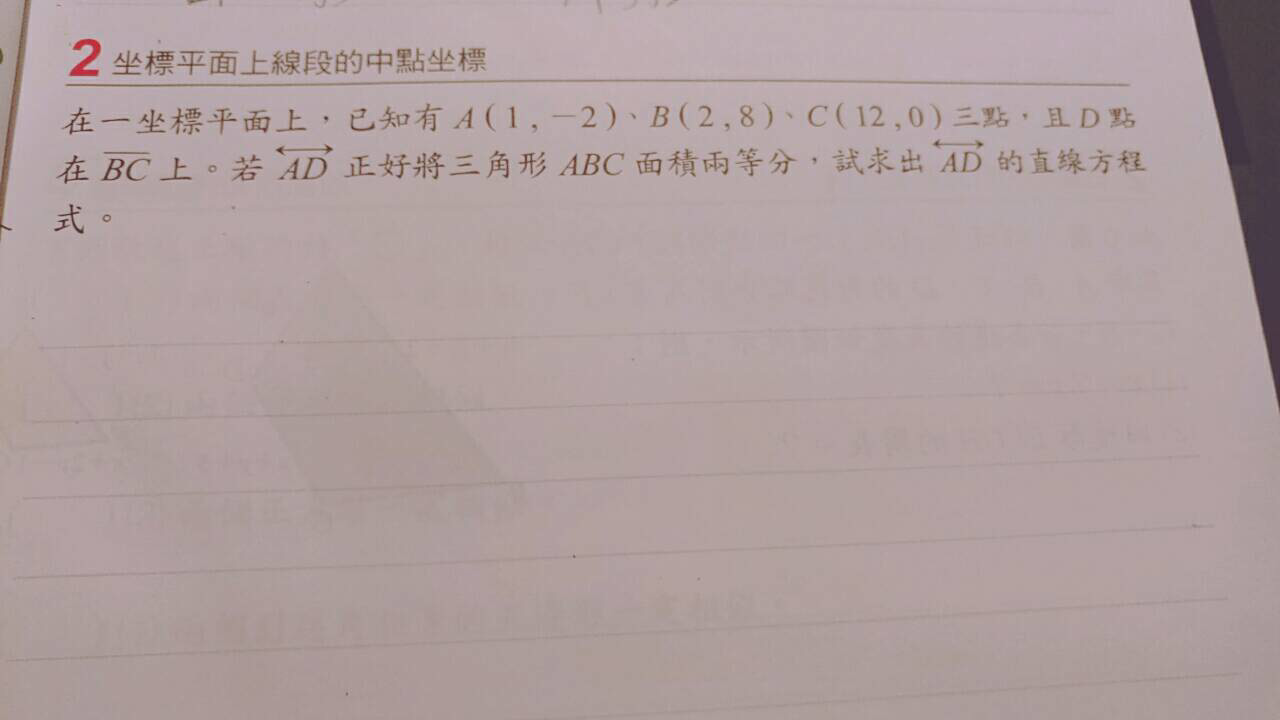 2 坐標平面上線段的中點坐標
在一坐標平面上，已知有 A(1,－2)、B(2,8)、C(12,0)三點，且D點
在 BC 上。若 AD 正好將三角形 ABC 面積兩等分，試求出 AD 的直線方程
式。